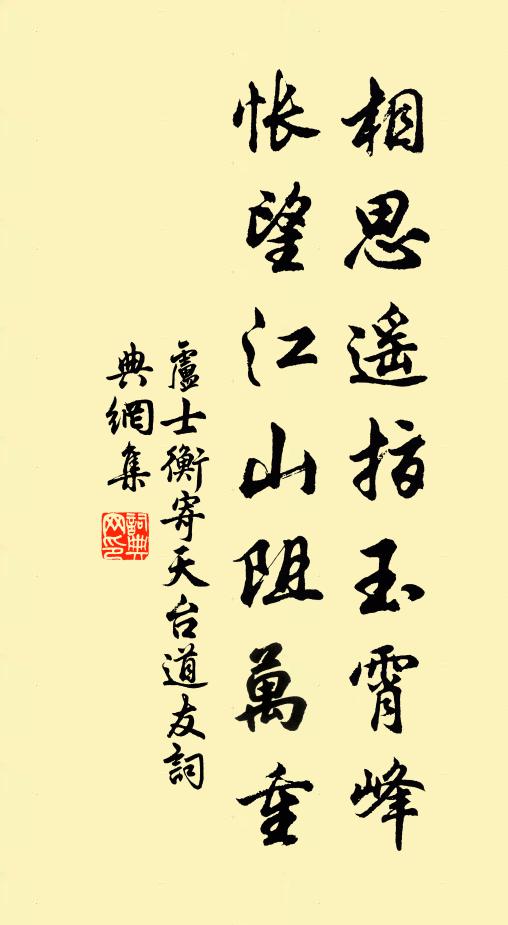 相思遙指玉霄峰
悵望江山阻萬重
盧士衡寄天台道友詞
典網集
詞典
網印